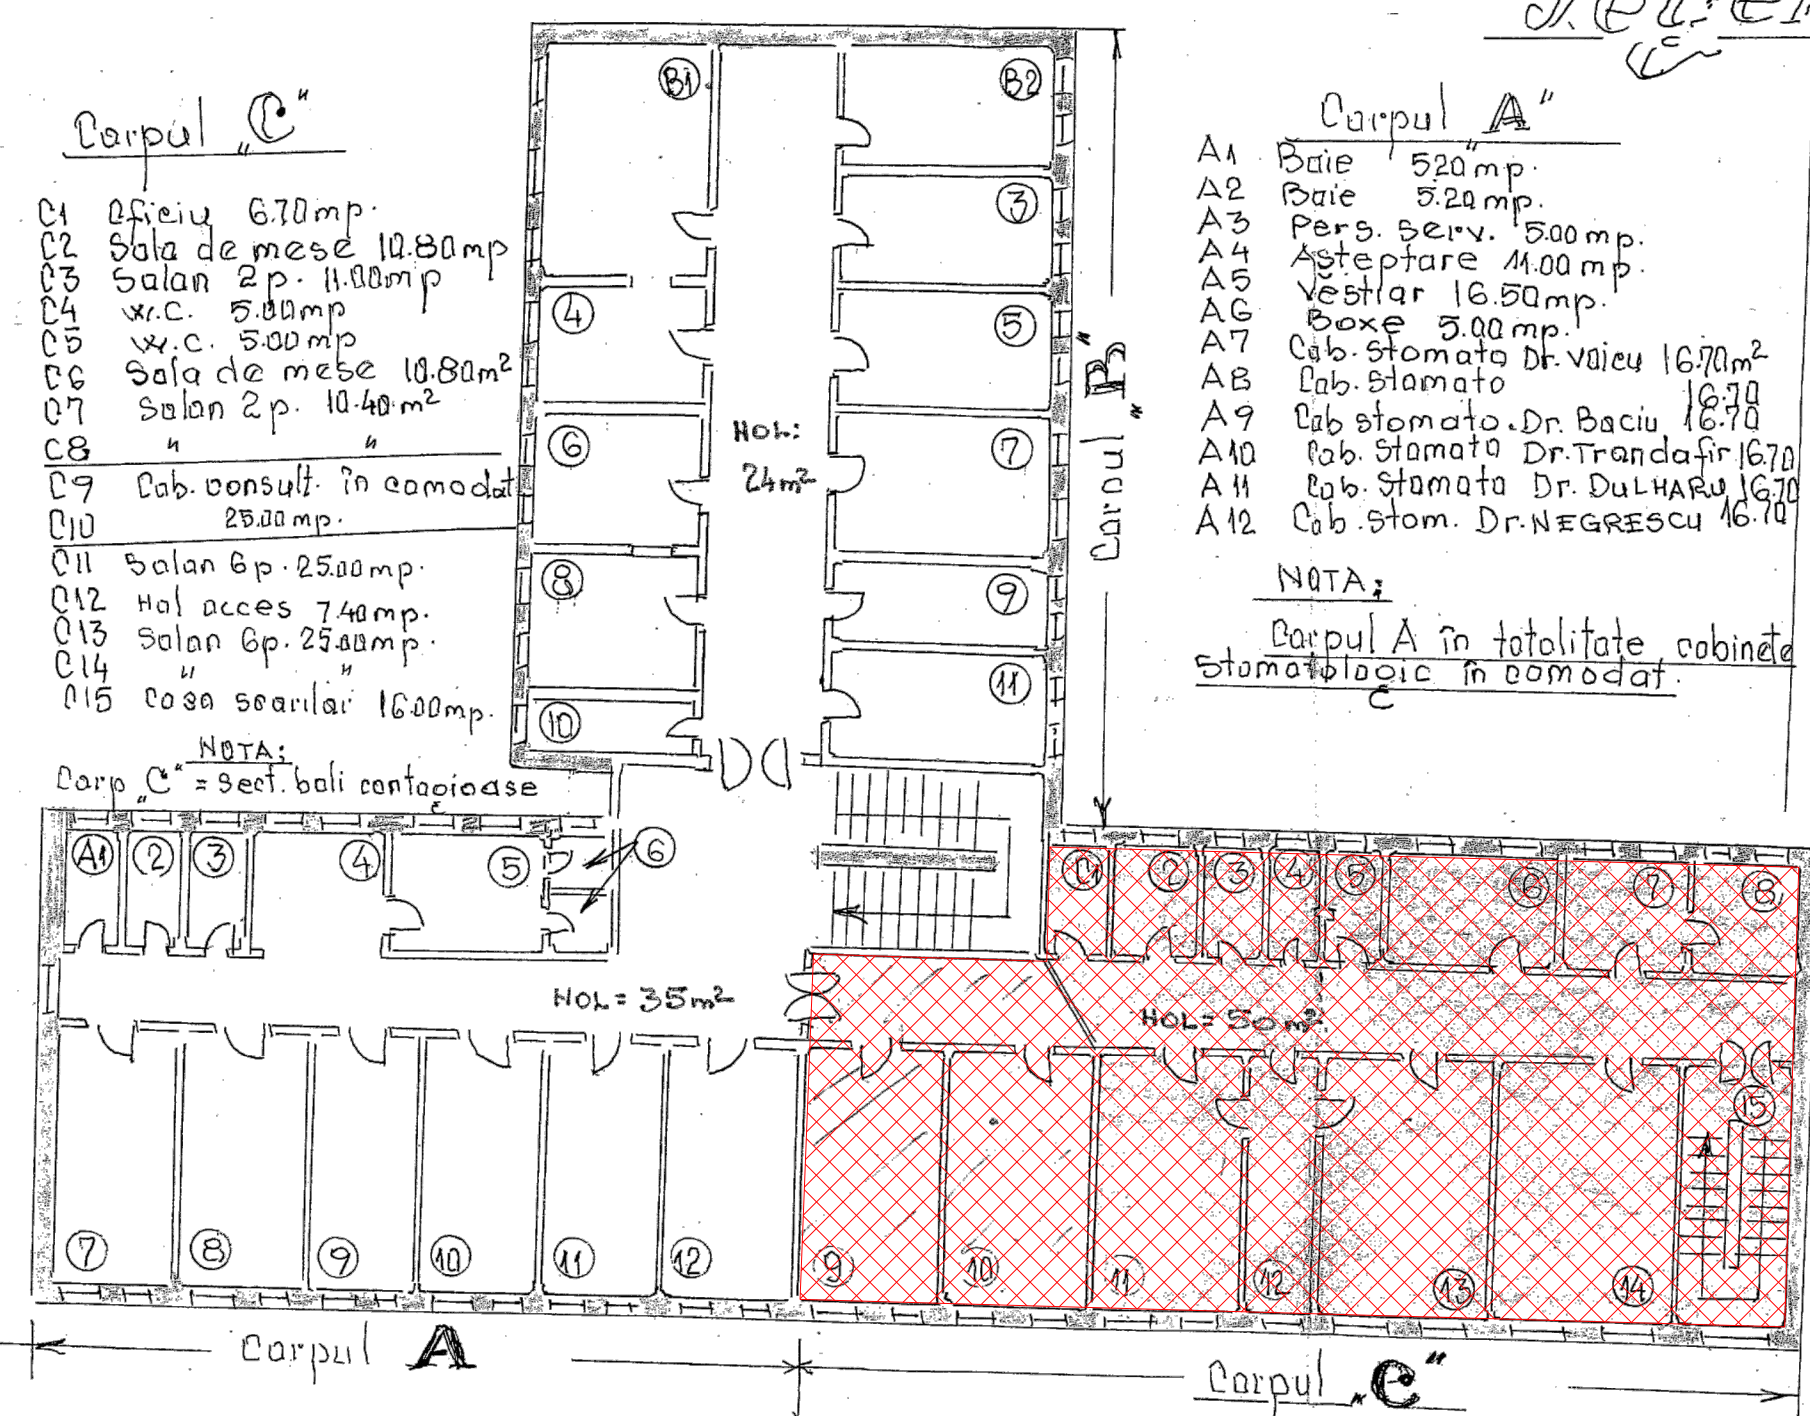 Corpul „C"
C1 Oficiu 6.70 mp.
C2 Sala de mese 10.80 mp
C3 Salon 2 p. 11.00 mp
C4 W.C. 5.00 mp
C5 W.C. 5.00 mp
C6 Sala de mese 10.80 m²
C7 Salon 2 p. 10.40 m²
C8 " "
C9 Cab. consult. în comodat
C10 25.00 mp.
C11 Salon 6p. 25.00 mp.
C12 Hol acces 7.40 mp.
C13 Salon 6p. 25.00 mp.
C14 " "
C15 Casa scarilor 16.00 mp.
NOTA:
Corp „C" = Sect. boli contagioase
Corpul A"
A1 Baie 5.20 mp.
A2 Baie 5.20 mp.
A3 Pers. serv. 5.00 mp.
A4 Asteptare 11.00 mp.
A5 Vestiar 16.50 mp.
A6 Boxe 5.00 mp.
A7 Cab. Stomato Dr. Voicu 16.70 m²
A8 Cab. Stomato 16.70
A9 Cab stomato. Dr. Baciu 16.70
A10 Cab. Stomato Dr. Trandafir 16.70
A11 Cab. Stomato Dr. DULHARU 16.70
A12 Cab. Stom. Dr. NEGRESCU 16.70
NOTA:
Corpul A în totalitate cabinete
Stomatologic în comodat.
B1
B2
3
4
5
6
7
8
9
10
11
HOL:
24 m²
Corpul „B"
A1 2 3 4 5 6
HOL = 35 m²
7 8 9 10 11 12
2 3 4 5 6 7 8
HOL = 50 m²
9 10 11 12 13 14 15
Corpul A
Corpul „C"